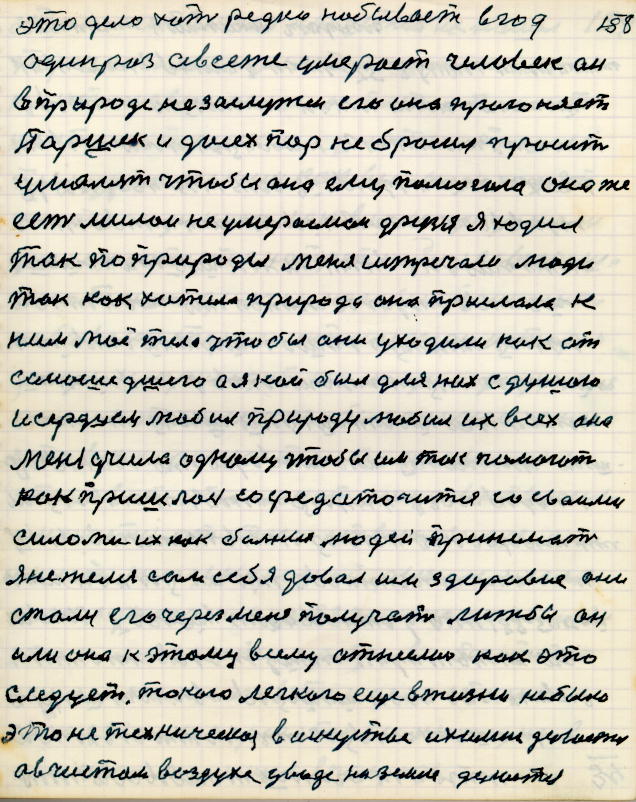 это дело хоть редко побывает вгод 158
один раз авсеже умерает человек он
вприроде незаслужил его она прогоняет
Паршек и досехпор небросил просит
умалят чтобы она ему помогала онаже
есть милои неумераемая друзья я ходил
так по природы меня истречали люди
так как хотела природа она прыслала к
ним моё тело чтобы они уходили как от
самошедшего а я кой был для них сдушою
исердцем любил природу любил их всех она
меня учила одному чтобы им так помогат
как пришлой сосредаточится сосвоими
силоми их как болных людей принемат
янежелел сам себя довал им здоровие они
стали его через меня получат лижбы он
или она кэтому всему отнеслис как это
следует. такого легкого еще вжизни небыло
это не техническое вискуства ихимии деласти
авчистом воздухе уводе наземле